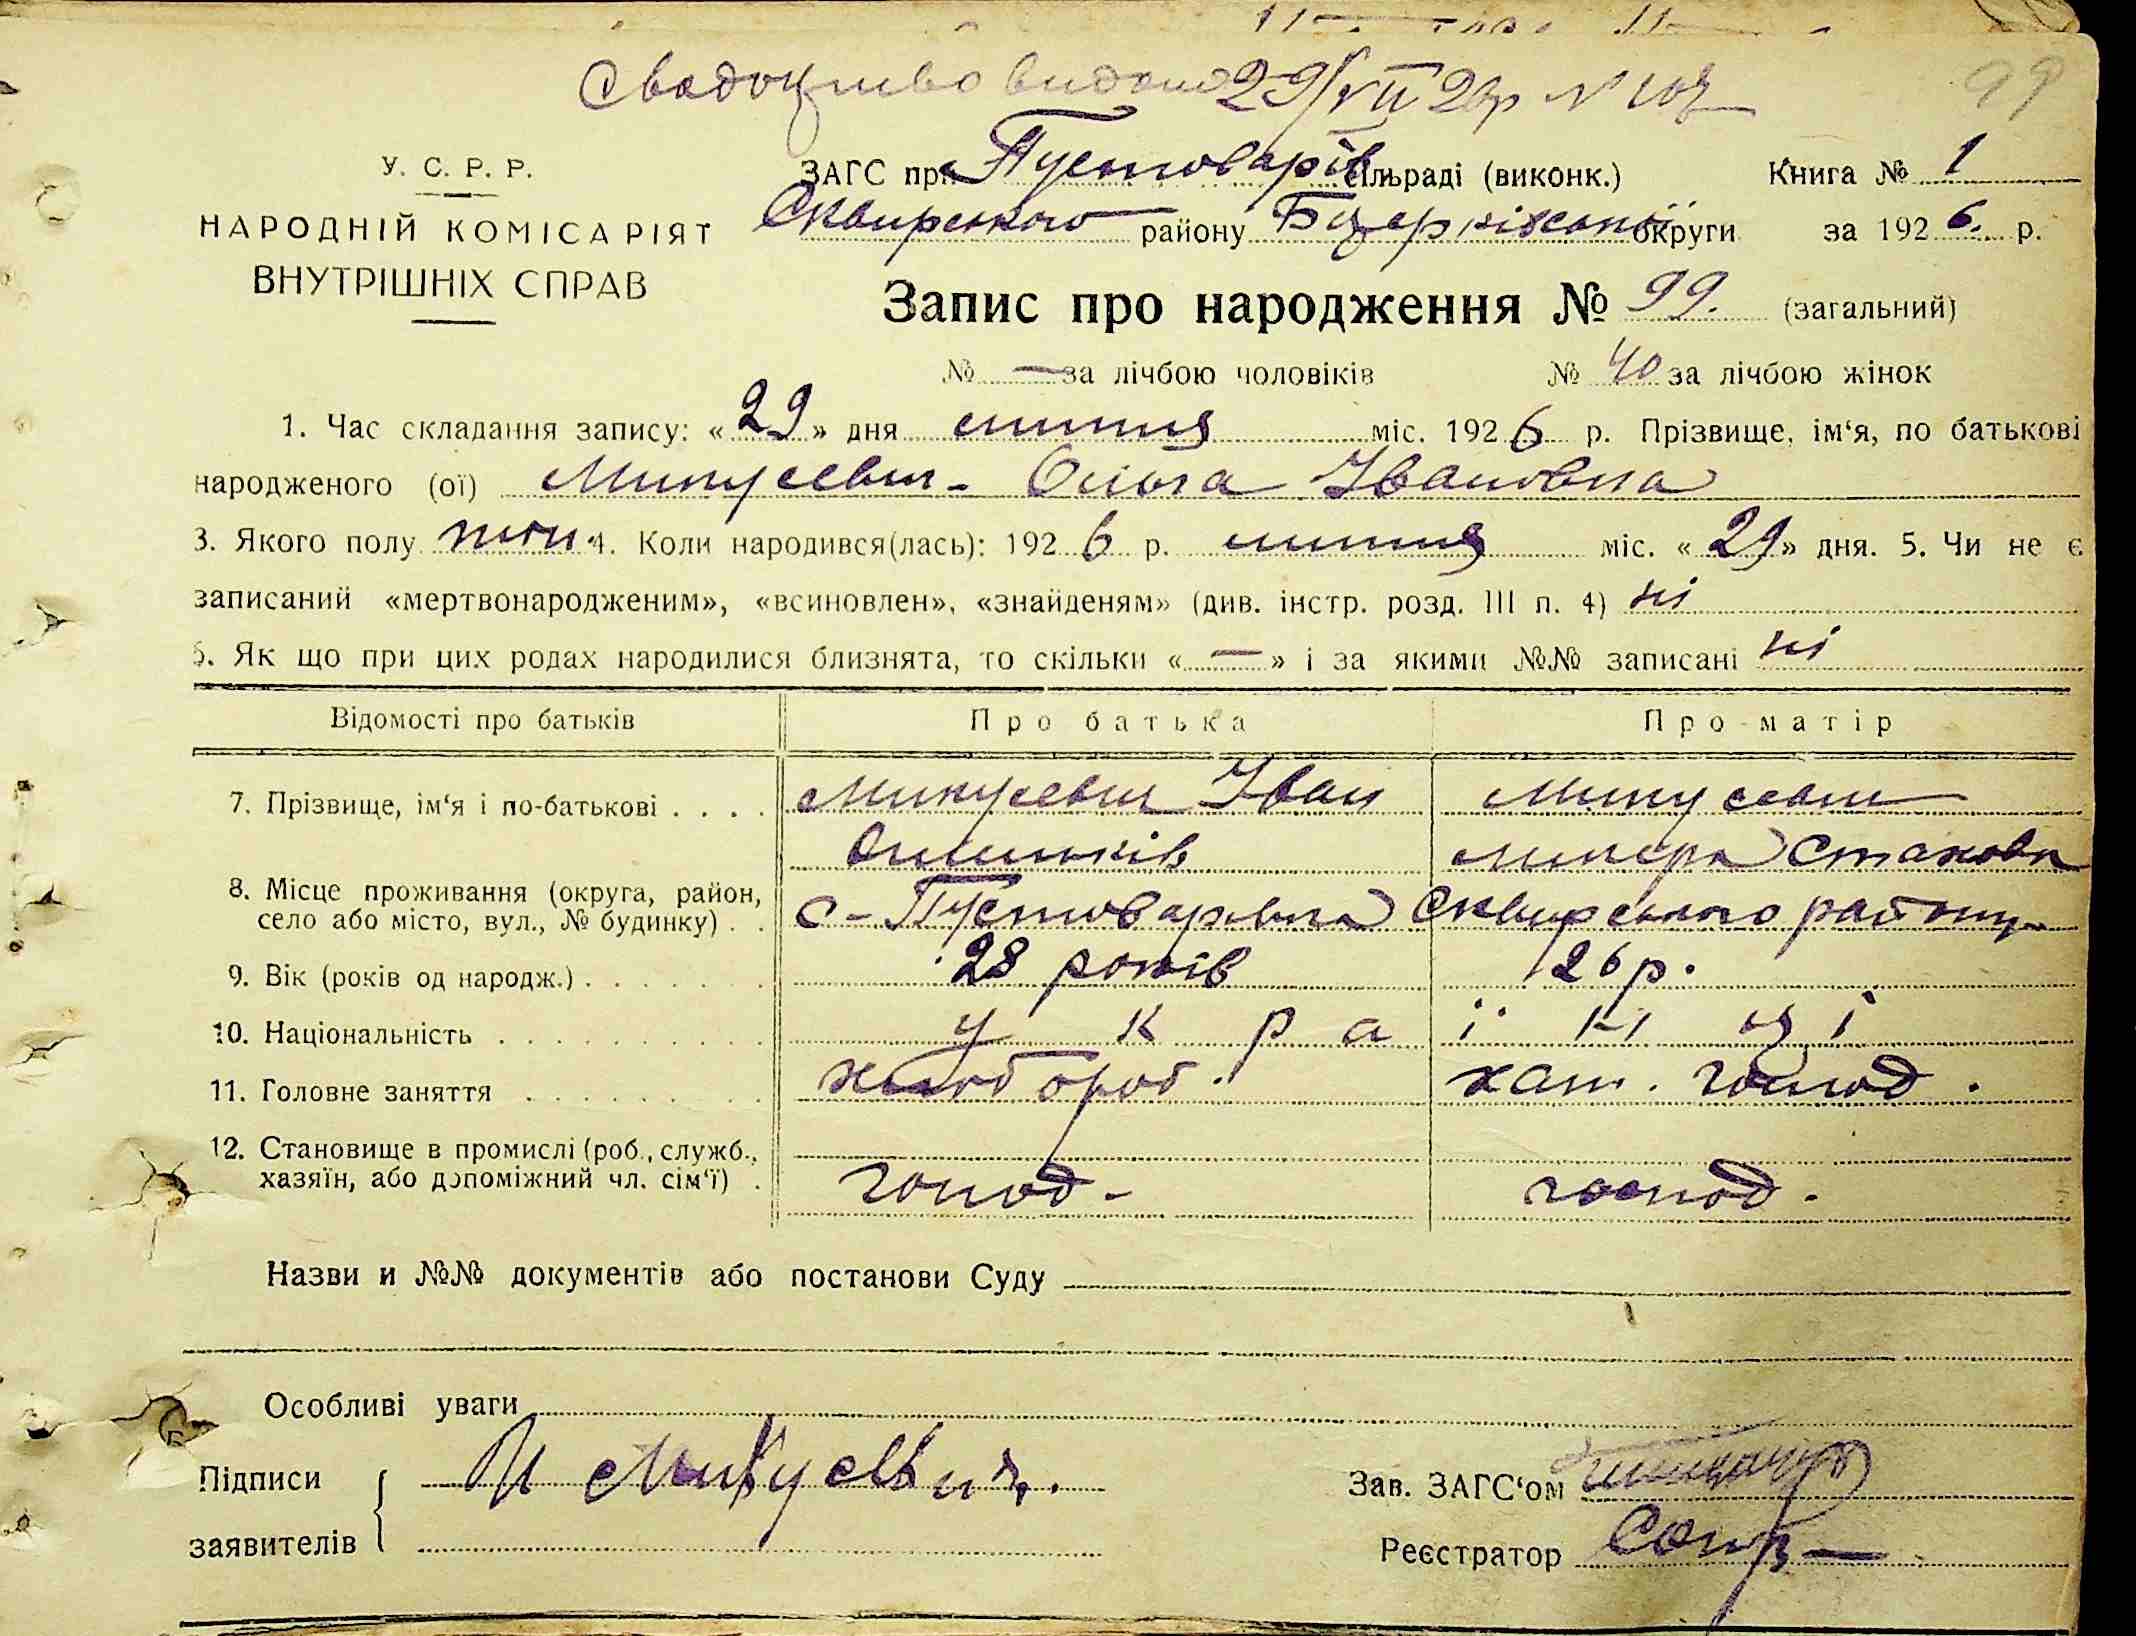 29/VII 26р №
99
У. С. Р. Р.
НАРОДНІЙ КОМІСАРІЯТ
ВНУТРІШНІХ СПРАВ
ЗАГС при Пустоварів сільраді (виконк.) Книга № 1
Сквирського району Бцерківської округи за 1926. р.
Запис про народження № 99. (загальний)
№ — за лічбою чоловіків № 40 за лічбою жінок
1. Час складання запису: «29» дня липня міс. 1926 р. Прізвище, ім‘я, по батькові
народженого (ої) Микусевич - Ольга Івановна
3. Якого полу жін. 4. Коли народився(лась): 1926 р. липня міс. «29» дня. 5. Чи не є
записаний «мертвонародженим», «всиновлен», «знайденям» (див. інстр. розд. III п. 4) ні
6. Як що при цих родах народилися близнята, то скільки «—» і за якими №№ записані ні
Відомості про батьків Про батька Про матір
7. Прізвище, ім‘я і по-батькові . . . . Микусевич Іван Микусевич
8. Місце проживання (округа, район,
село або місто, вул., № будинку) . . с-Пустоварівка Сквирського району
9. Вік (років од народж.) . . . . . . . 28 років 26 р.
10. Національність . . . . . . . . . . . У к р а ї н ц і
11. Головне заняття . . . . . . . . . . хлібороб. хат. господ.
12. Становище в промислі (роб., служб.,
хазяїн, або допоміжний чл. сім‘ї) . господ- господ.
Назви и №№ документів або постанови Суду
Особливі уваги
Підписи И Микусевич.
заявителів
Зав. ЗАГС‘ом
Реєстратор